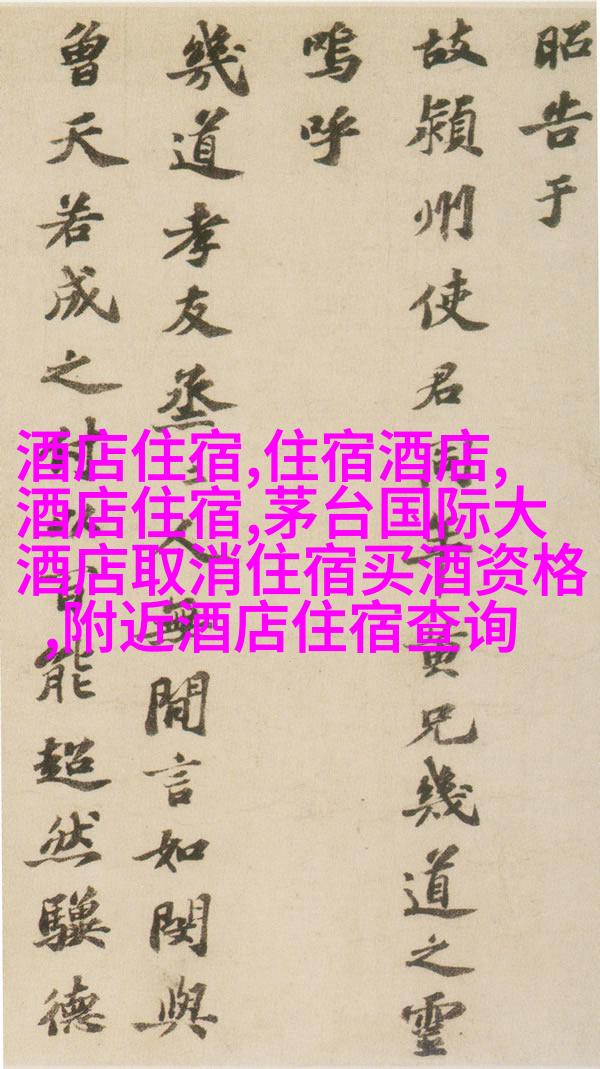 昭告于
故潁州使君同年黄兄幾道之靈
嗚呼
幾道孝友烝人無間言如閔與
曾天若成之百能超然驥德
酒店住宿,住宿酒店,
酒店住宿,茅台国际大
酒店取消住宿买酒资格
,附近酒店住宿查询